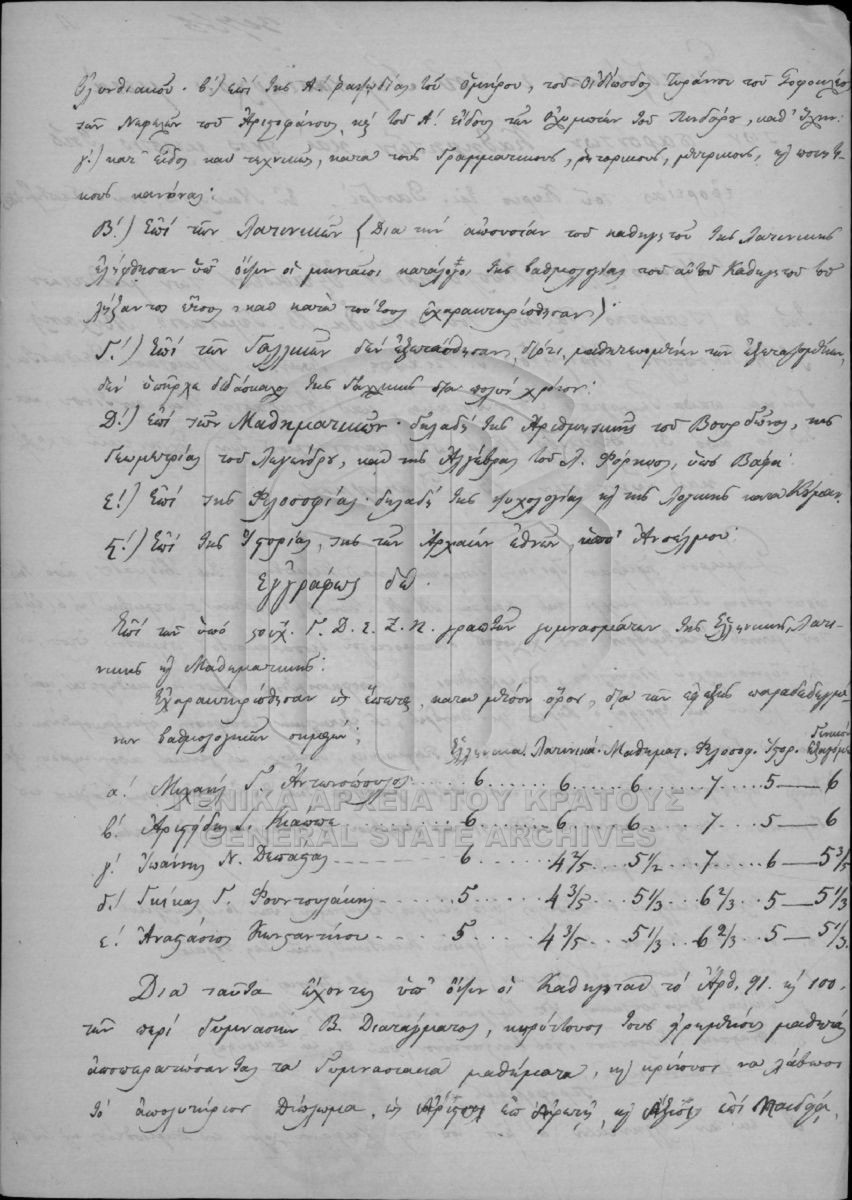 Ὀλυνθιακοῦ. β΄.) ἐπὶ τῆς Α΄. ῥαψῳδίας τοῦ Ὁμήρου, τοῦ Οἰδίποδος Τυράννου τοῦ Σοφοκλέος
τῶν Νεφελῶν τοῦ Ἀριστοφάνους, καὶ τοῦ Α΄. εἴδους τῶν Ὀλυμπίων τοῦ Πινδάρου, καθ᾽ ὕλην:
γ΄.) κατ᾽ εἶδος καὶ τεχνικῶς, κατὰ τοὺς Γραμματικοὺς, ῥητορικοὺς, μετρικοὺς, καὶ ποιητι-
κοὺς κανόνας:
Β΄.) Ἐπὶ τῶν Λατινικῶν (Διὰ τὴν ἀπουσίαν τοῦ καθηγητοῦ τῆς Λατινικῆς
ἐλήφθησαν ὑπ᾽ ὄψιν οἱ μηνιαῖοι κατάλογοι τῆς βαθμολογίας τοῦ αὐτοῦ Καθηγητοῦ τοῦ
λήξαντος ἔτους, καὶ κατὰ τούτους ἐχαρακτηρίσθησαν)·
Γ΄.) Ἐπὶ τῶν Γαλλικῶν δὲν ἐξετάσθησαν, διότι, μαθητευομένων τῶν ἐξεταζομένων,
δὲν ὑπῆρχε διδάσκαλος τῆς Γαλλικῆς διὰ πολὺν χρόνον:
Δ΄.) ἐπὶ τῶν Μαθηματικῶν· δηλαδὴ τῆς Ἀριθμητικῆς τοῦ Βουρδῶνος, τῆς
Γεωμετρίας τοῦ Λεγένδρου, καὶ τῆς Ἀλγέβρας τοῦ Λ. Φόρκηλ, ὑπὸ Βάφα·
Ε΄.) Ἐπὶ τῆς Φιλοσοφίας· δηλαδὴ τῆς ψυχολογίας καὶ τῆς Λογικῆς κατὰ
ΣΤ΄.) Ἐπὶ τῆς Ἱστορίας, τῆς τῶν Ἀρχαίων ἐθνῶν, ὑπὸ Ἀνσέλμου:
Ἐγγράφως δὲ.
Ἐπὶ τῶν ὑπὸ στοιχ. Γ. Δ. Ε. Ζ. Η. γραπτῶν γυμνασμάτων τῆς Ἑλληνικῆς, Λατι-
νικῆς καὶ Μαθηματικῆς:
Ἐχαρακτηρίσθησαν ὡς ἕπεται, κατὰ μέσον ὅρον, διὰ τῶν ἐφεξῆς παραδεδεγμέ-
νων βαθμολογικῶν σημείων:
Ἑλληνικά. Λατινικά. Μαθηματ. Φιλοσοφ. Ἱστορ. Γενικὸν
α΄. Μιχαὴλ Γ. Ἀντωνόπουλος 6 6 6 7 5 6
β΄. Ἀριστείδης Κιάππε 6 6 6 7 5 6
γ΄. Ἰωάννης Ν. Δεπάστας 6 4 2/5 5 1/2 7 6 5 3/5
δ΄. Γκίκας Γ. Φουντουλάκης 5 4 3/5 5 1/3 6 2/3 5 5 1/3
ε΄. Ἀναστάσιος Κωνσταντίνου 5 4 3/5 5 1/3 6 2/3 5 5 1/3.
Διὰ ταῦτα ἔχοντες ὑπ᾽ ὄψιν οἱ Καθηγηταὶ τὸ Ἄρθ. 91. καὶ 100.
τῶν περὶ Γυμνασίων Β. Διατάγματος, κηρύττουσι τοὺς εἰρημένους μαθητὰς
ἀποπερατώσαντας τὰ Γυμνασιακὰ μαθήματα, καὶ κρίνουσι νὰ λάβωσι
τὸ ἀπολυτήριον Δίπλωμα, ὡς Ἄριστοι ἐπ᾽ Ἀρετῇ, καὶ Ἄξιοι ἐπὶ Παιδείᾳ,
ΓΕΝΙΚΑ ΑΡΧΕΙΑ ΤΟΥ ΚΡΑΤΟΥΣ
GENERAL STATE ARCHIVES